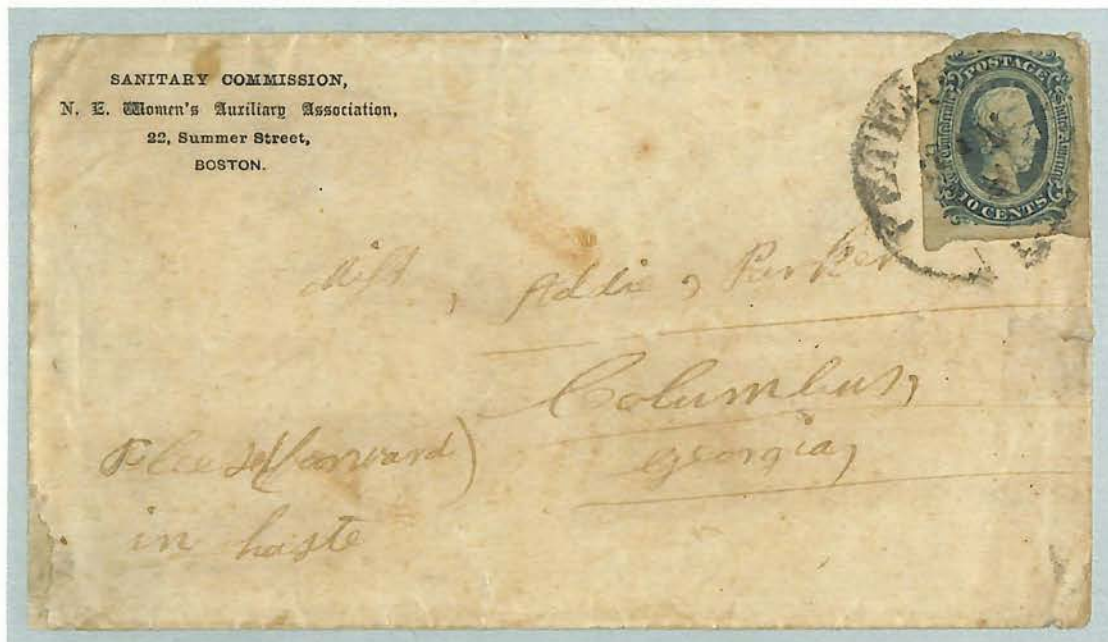 SANITARY COMMISSION,
N. E. Women's Auxiliary Association,
22, Summer Street,
BOSTON.
POSTAGE
Confederate States America
10 CENTS
Miss, Addie, Parker
Columbus,
Georgia,
Please (forward)
in haste